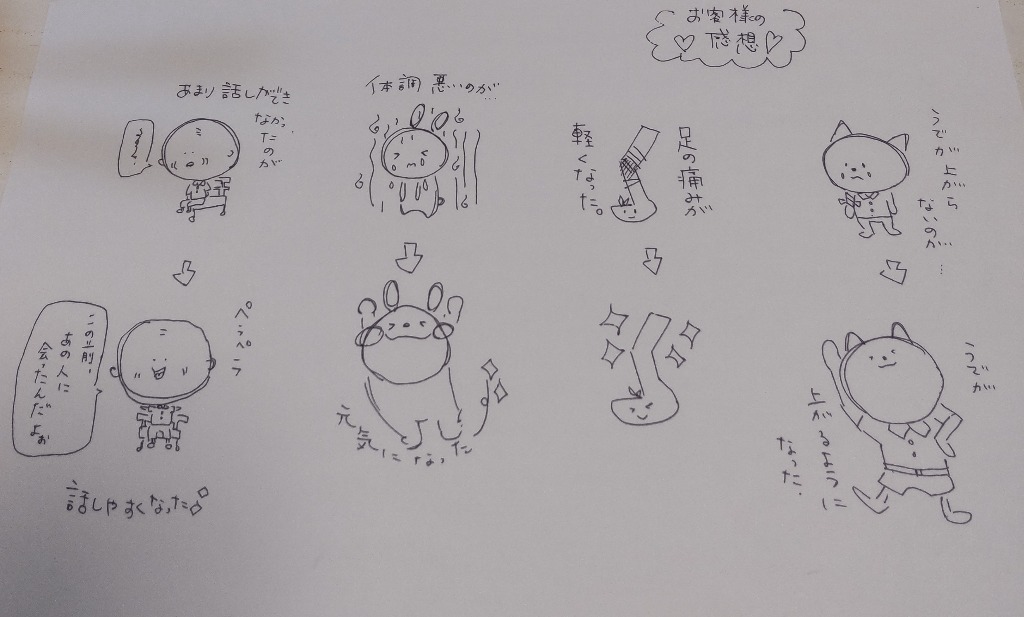 お客様の
感想
うでが上がら
ないのが…
うでが
上がるように
なった.
足の痛みが
軽くなった。
体調悪いのが…
元気になった
あまり話しができ
なかったのが
ペラペラ
この前、
あの人に
会ったんだよぉ
話しやすくなった